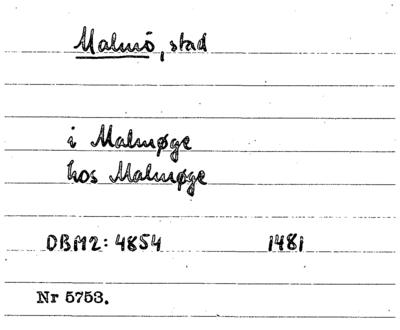 Malmö, stad
i Malmøge
hos Malmøge
DBM2: 4854 1481
Nr 5753.